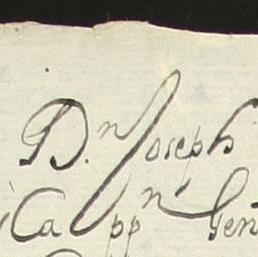 D.n Joseph
Capp.n Gen